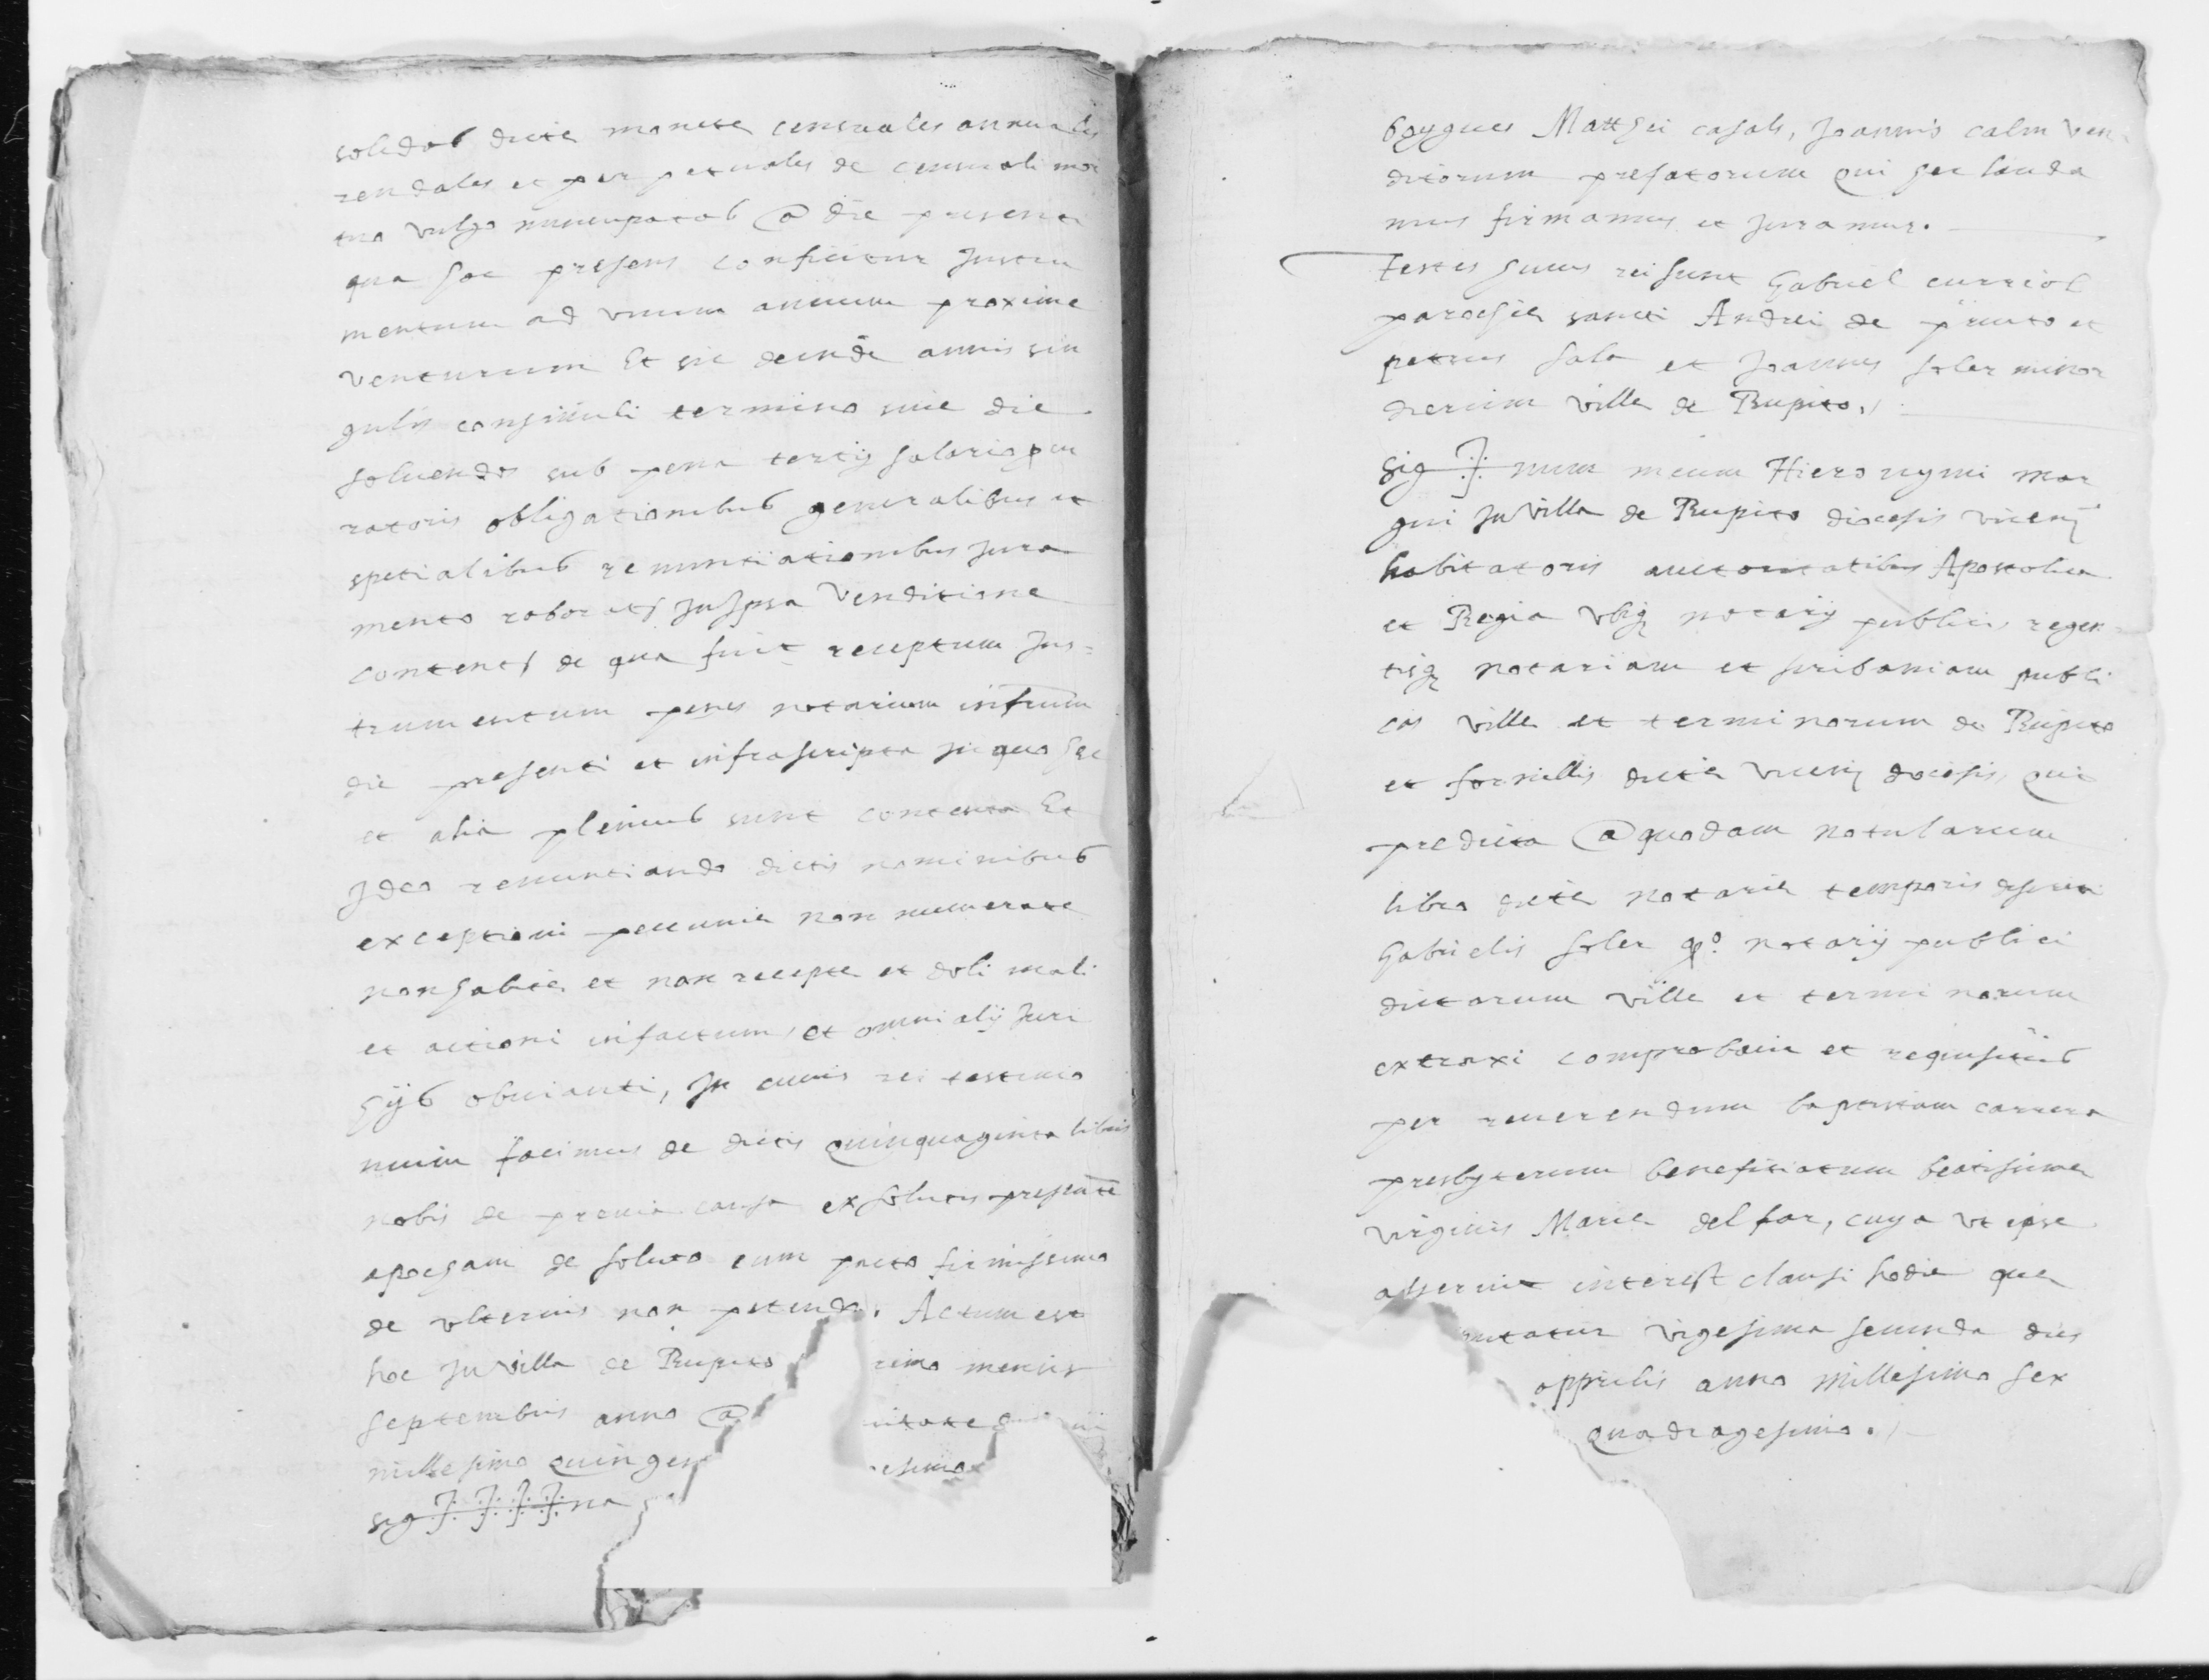 solidos dicte monete censuales annuales
rendales et perpetuales de censuali mor
tuo vulgo nuncupatos @ die presenti
qua hoc presens conficitur Instru
mentum ad vnum annum proxime
venturum Et sic deinde annis sin
gulis consimili termino siue die
soluendos sub pena tertij salario procu
ratoris obligationibus generalibus et
spetialibus renuntiationibus Jura
mento roborats In Ipsa venditione
contents de qua fuit receptum Jns=
trumentum penes notarium infrum
die presenti et infrascripta in quo hec
et alia plenius sunt contenta Et
Ideo renuntiando dictis nominibus
exceptioni pecunie non numerate
non habite et non recepte et doli mali
et actioni infactum, et omni alij Juri
hijs obuianti, In cuius rei testimo
nium facimus de dictis quinquaginta libris
nobis de premia causa exsolutis presente
apocham de soluto cum pacto firmissimo
de vlterius non petendo. Actum est
hoc In villa de Rupito rimo mensis
septembris anno @ uitate
millesimo quingen esimo
sig++++na
boygues Matthei casals, Joannis calm ven
ditorum prefatorum qui hec lauda
mus firmamus et Juramus.
Testes huius rei sunt Gabriel curriol
parochie sancti Andrei de pruito et
petrus sala et Joannes soler minor
dierum ville de Rupito,
Sig+num meum Hieronymi mar
qui In villa de Rupito diocesis vicen
habitatoris auctoritatibus Apostolica
et Regia vbiq notarij publici, regen=
tisq notariam et scribaniam publi
cas ville et terminorum de Rupito
et fornillis dicte vicen diocesis, qui
predicta @ quodam notularum
libro dicte notarie temporis
Gabrielis soler qo. notarij publici
dictarum ville et terminorum
extraxi comprobaui et requisitus
per reuerendum baptistam carrera
presbyterum benefitiatum beatissime
virginis Marie del far, cuya vt ipse
asseruit interest clausi hodie que
putatur vigesima secunda dies
apprilis anno millesimo sex
quadragesimo.